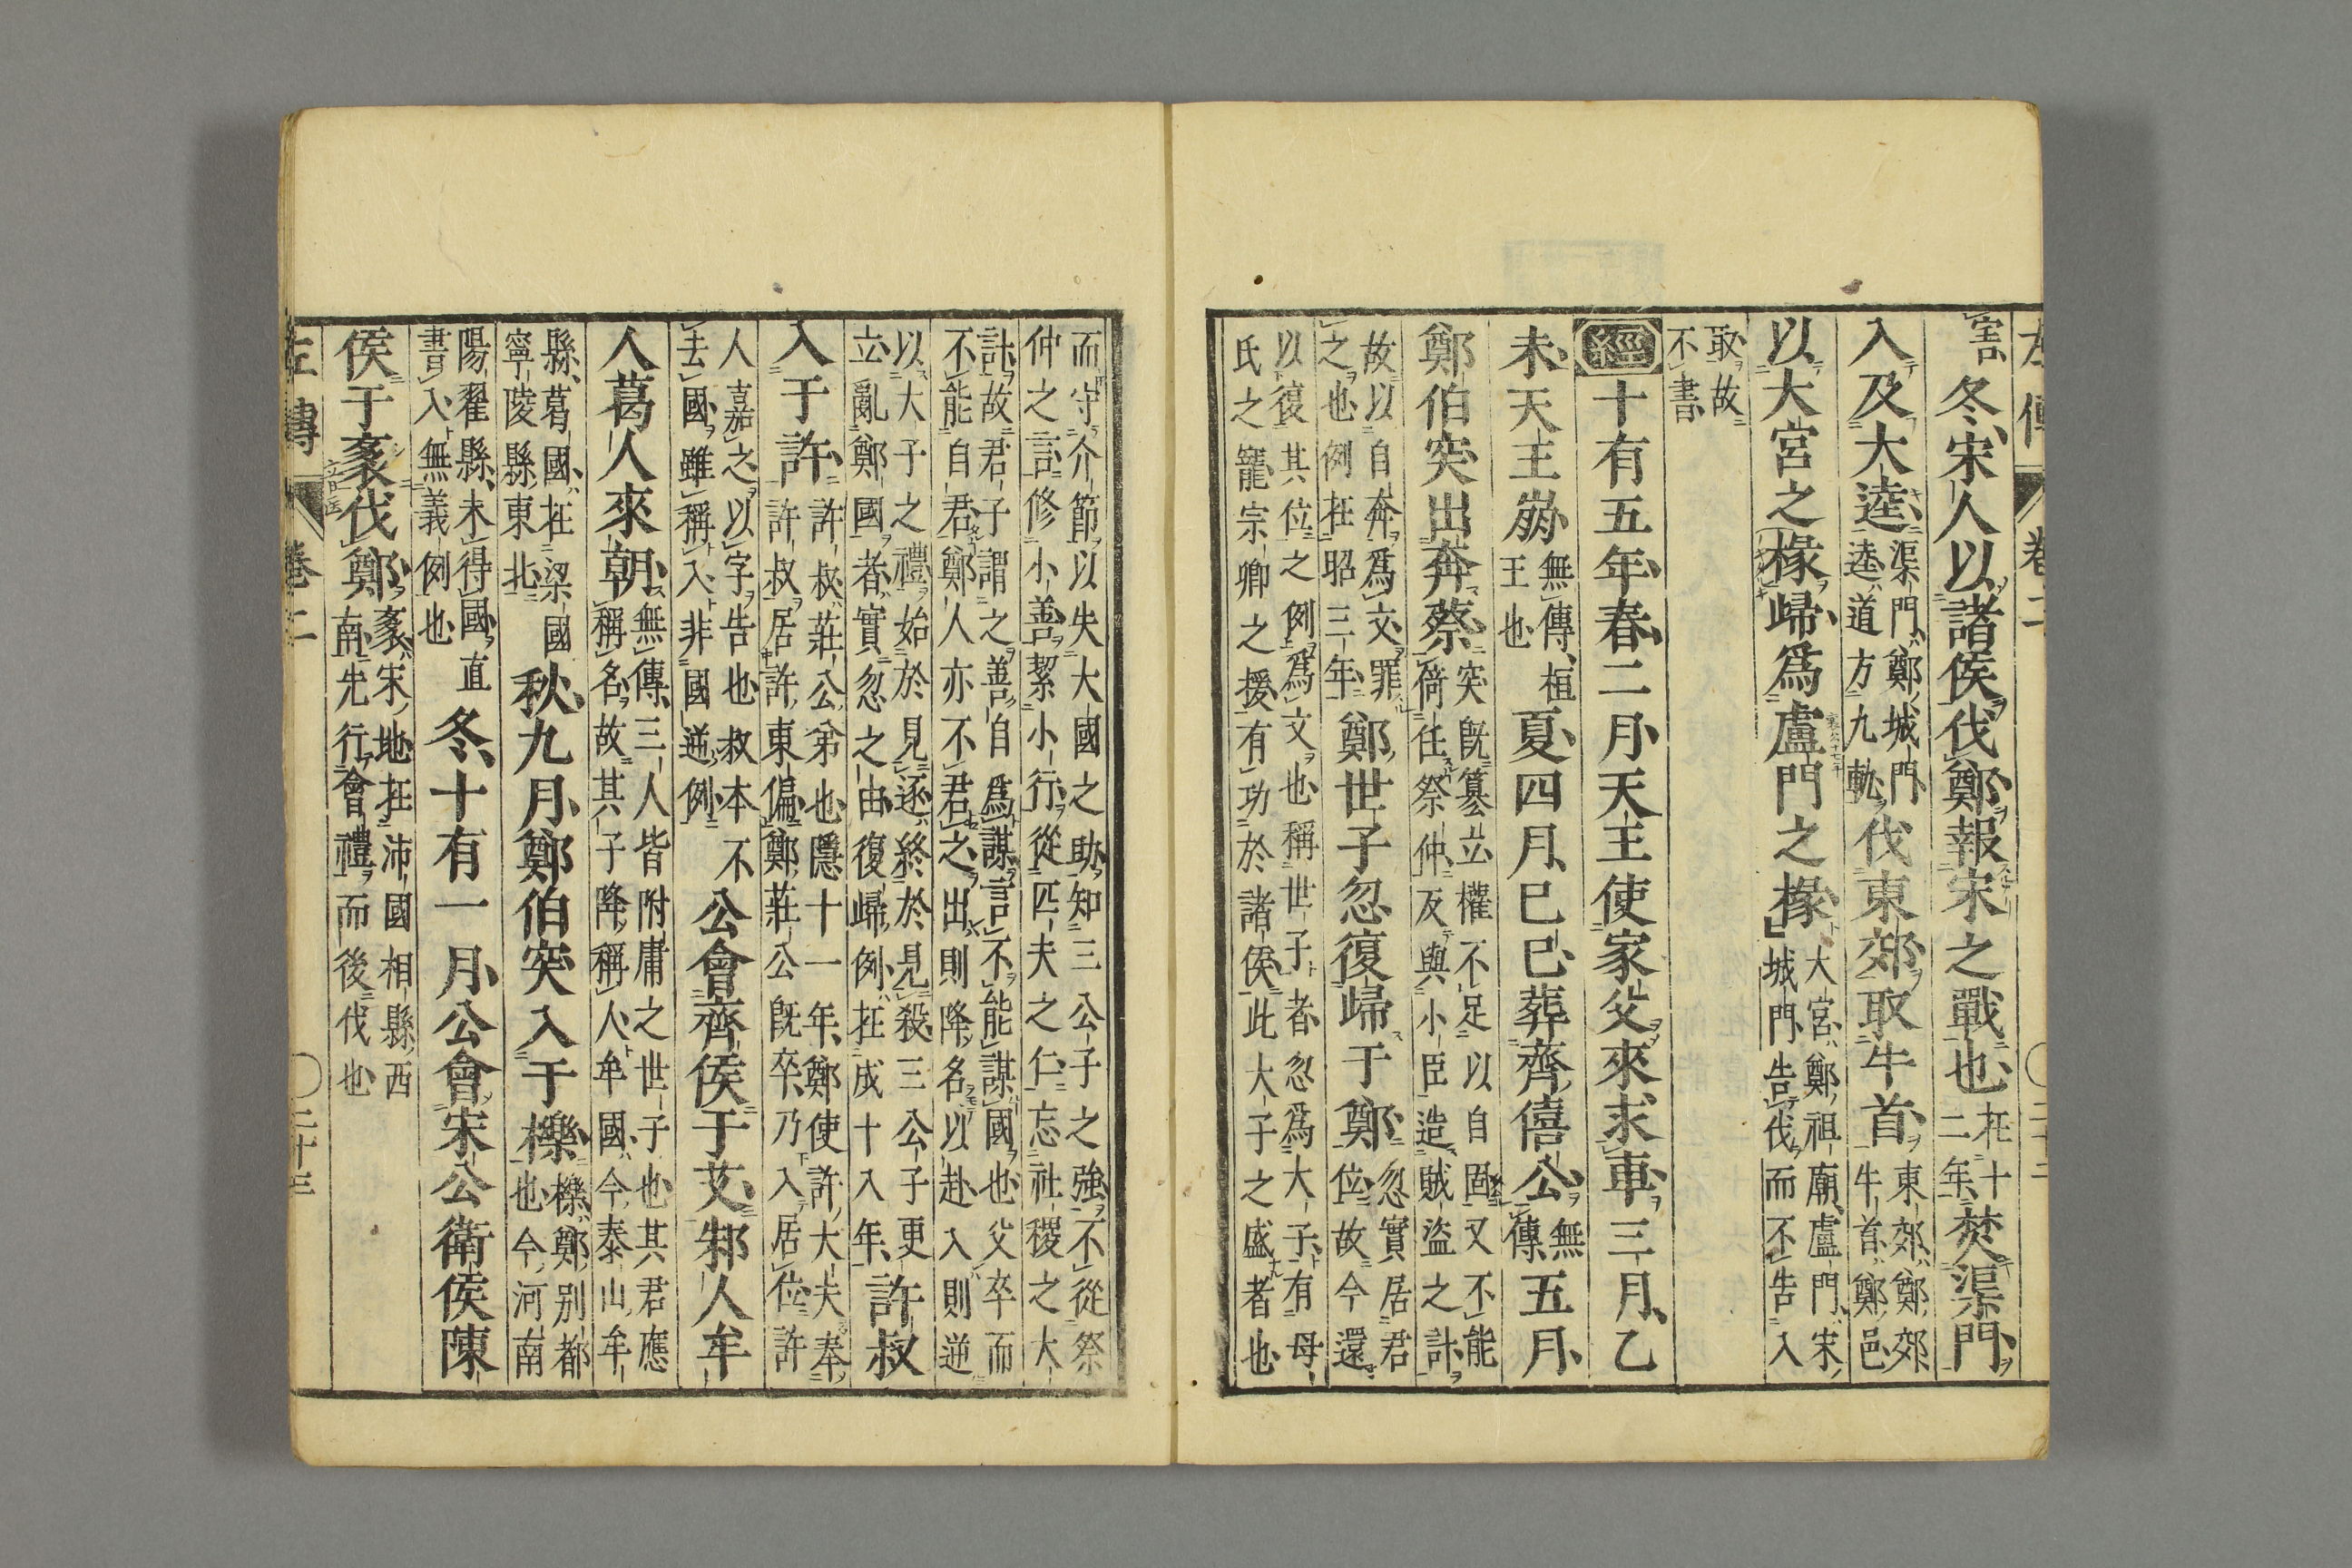 害冬宋人以諸侯伐鄭報宋之戰也在十二年焚渠門
入及大逵渠門鄭城門逵道方九軌伐東郊取牛首東郊鄭郊牛首鄭邑
以大宮之椽歸爲盧門之椽大宮鄭祖廟盧門宋城門告伐而不告入
取故不書
經十有五年春二月天王使家父來求車三月乙
未天王崩無傳桓王也夏四月己巳葬齊僖公無傳五月
鄭伯突出奔蔡突既篡立權不足以自固又不能倚任祭仲反與小臣造賊盜之計
故以自奔爲文罪之也例在昭三年鄭世子忽復歸于鄭忽實居君位故今還
以復其位之例爲文也稱世子者忽爲大子有母氏之寵宗卿之援有功於諸侯此大子之盛者也
而守介節以失大國之助知三公子之強不從祭仲之言修小善絜小行從匹夫之仁忘社稷之大
計故君子謂之善自爲謀言不能謀國也父卒而不能自君鄭人亦不君之出則降名以赴入則逆
以大子之禮始於見逐終於見殺三公子更立亂鄭國者實忽之由復歸例在成十八年許叔
入于許許叔莊公弟也隱十一年鄭使許大夫奉許叔居許東偏鄭莊公既卒乃入居位許
人嘉之以字告也叔本不去國雖稱入非國逆例公會齊侯于艾邾人牟
人葛人來朝無傳三人皆附庸之世子也其君應稱名故其子降稱人牟國今泰山牟
縣葛國在梁國寧陵縣東北秋九月鄭伯突入于櫟櫟鄭別都也今河南
陽翟縣未得國直書入無義例也冬十有一月公會宋公衛侯陳
侯于袲伐鄭袲宋地在沛國相縣西南先行會禮而後伐也
左傳 卷二 〇二十三